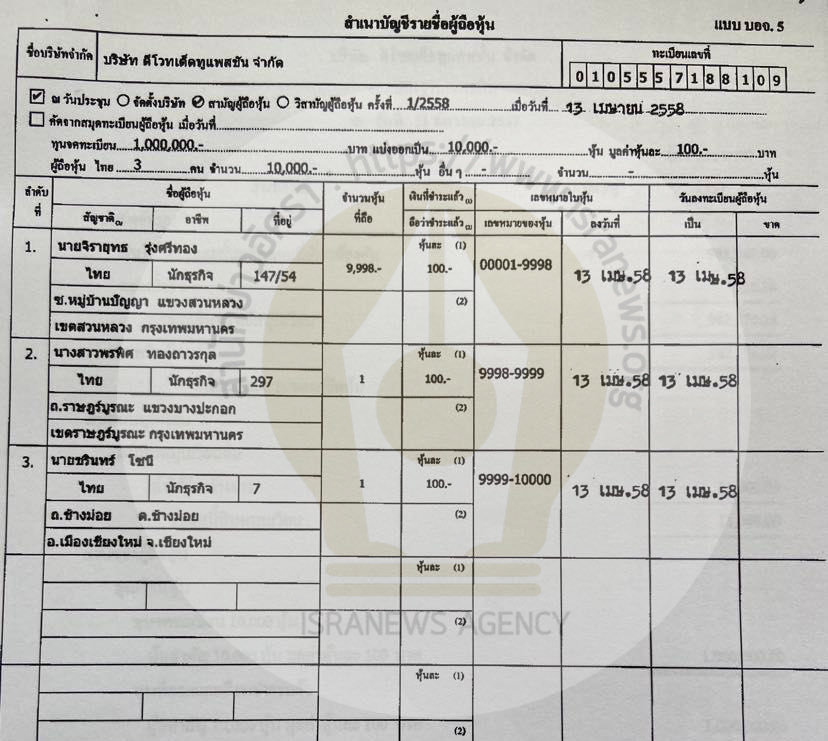 สำเนาบัญชีรายชื่อผู้ถือหุ้น
แบบ บอจ. 5
ชื่อบริษัทจำกัด บริษัท ดีโวทเต็ดทูแพสชัน จำกัด
ทะเบียนเลขที่
0105557188109
☑ ณ วันประชุม ○ จัดตั้งบริษัท ☑ สามัญผู้ถือหุ้น ○ วิสามัญผู้ถือหุ้น ครั้งที่ 1/2558 เมื่อวันที่ 13 เมษายน 2558
☐ คัดจากสมุดทะเบียนผู้ถือหุ้น เมื่อวันที่
ทุนจดทะเบียน 1,000,000.- บาท แบ่งออกเป็น 10,000.- หุ้น มูลค่าหุ้นละ 100.- บาท
ผู้ถือหุ้น ไทย 3 คน จำนวน 10,000.- หุ้น อื่น ๆ - จำนวน - หุ้น
ลำดับที่ ชื่อผู้ถือหุ้น จำนวนหุ้นที่ถือ เงินที่ชำระแล้ว เลขหมายใบหุ้น วันลงทะเบียนผู้ถือหุ้น
สัญชาติ อาชีพ ที่อยู่ ถือว่าชำระแล้ว เลขหมายของหุ้น ลงวันที่ เป็น ขาด
1. นายจิรายุทธ รุ่งศรีทอง หุ้นละ (1)
ไทย นักธุรกิจ 147/54 9,998.- 100.- 00001-9998 13 เมษ.58 13 เมษ.58
ซ.หมู่บ้านปัญญา แขวงสวนหลวง (2)
เขตสวนหลวง กรุงเทพมหานคร
2. นางสาวพรพิศ ทองถาวรกุล หุ้นละ (1)
ไทย นักธุรกิจ 297 1 100.- 9998-9999 13 เมษ.58 13 เมษ.58
ถ.ราษฎร์บูรณะ แขวงบางปะกอก (2)
เขตราษฎร์บูรณะ กรุงเทพมหานคร
3. นายชรินทร์ โซนี หุ้นละ (1)
ไทย นักธุรกิจ 7 1 100.- 9999-10000 13 เมษ.58 13 เมษ.58
ถ.ช้างม่อย ต.ช้างม่อย (2)
อ.เมืองเชียงใหม่ จ.เชียงใหม่
หุ้นละ (1)
(2)
หุ้นละ (1)
(2)
สำนักข่าวอิศรา : https://www.isranews.org
ISRANEWS AGENCY